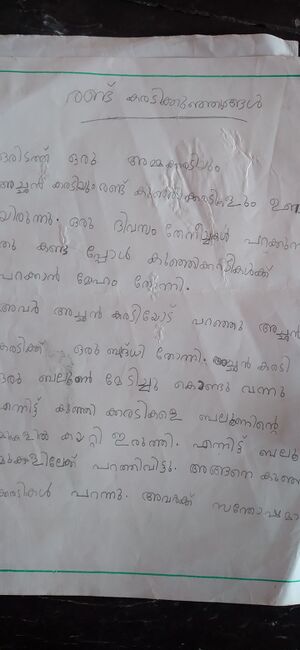 രണ്ട് കരടിക്കുഞ്ഞുങ്ങൾ
ഒരിടത്ത് ഒരു അമ്മക്കരടിയും
അച്ഛൻ കരടിയും രണ്ട് കുഞ്ഞിക്കരടികളും ഉണ്ടാ
യിരുന്നു. ഒരു ദിവസം തേനീച്ചകൾ പറക്കുന്ന
തു കണ്ട പ്പോൾ കുഞ്ഞിക്കരടികൾക്ക്
പറക്കാൻ മോഹം തോന്നി.
അവർ അച്ഛൻ കരടിയോട് പറഞ്ഞു അച്ഛൻ
കരടിക്ക് ഒരു ബുദ്ധി തോന്നി. അച്ഛൻ കരടി
ഒരു ബലൂൺ മേടിച്ചു കൊണ്ടു വന്നു
എന്നിട്ട് കുഞ്ഞി ക്കരടികളെ ബലൂണിന്റെ
മുകളിൽ കയറ്റി ഇരുത്തി. എന്നിട്ട് ബലൂ
മുകളിലേക്ക് പറത്തിവിട്ടു. അങ്ങനെ കുഞ്ഞ
ക്കരടികൾ പറന്നു. അവർക്ക് സന്തോഷമാ